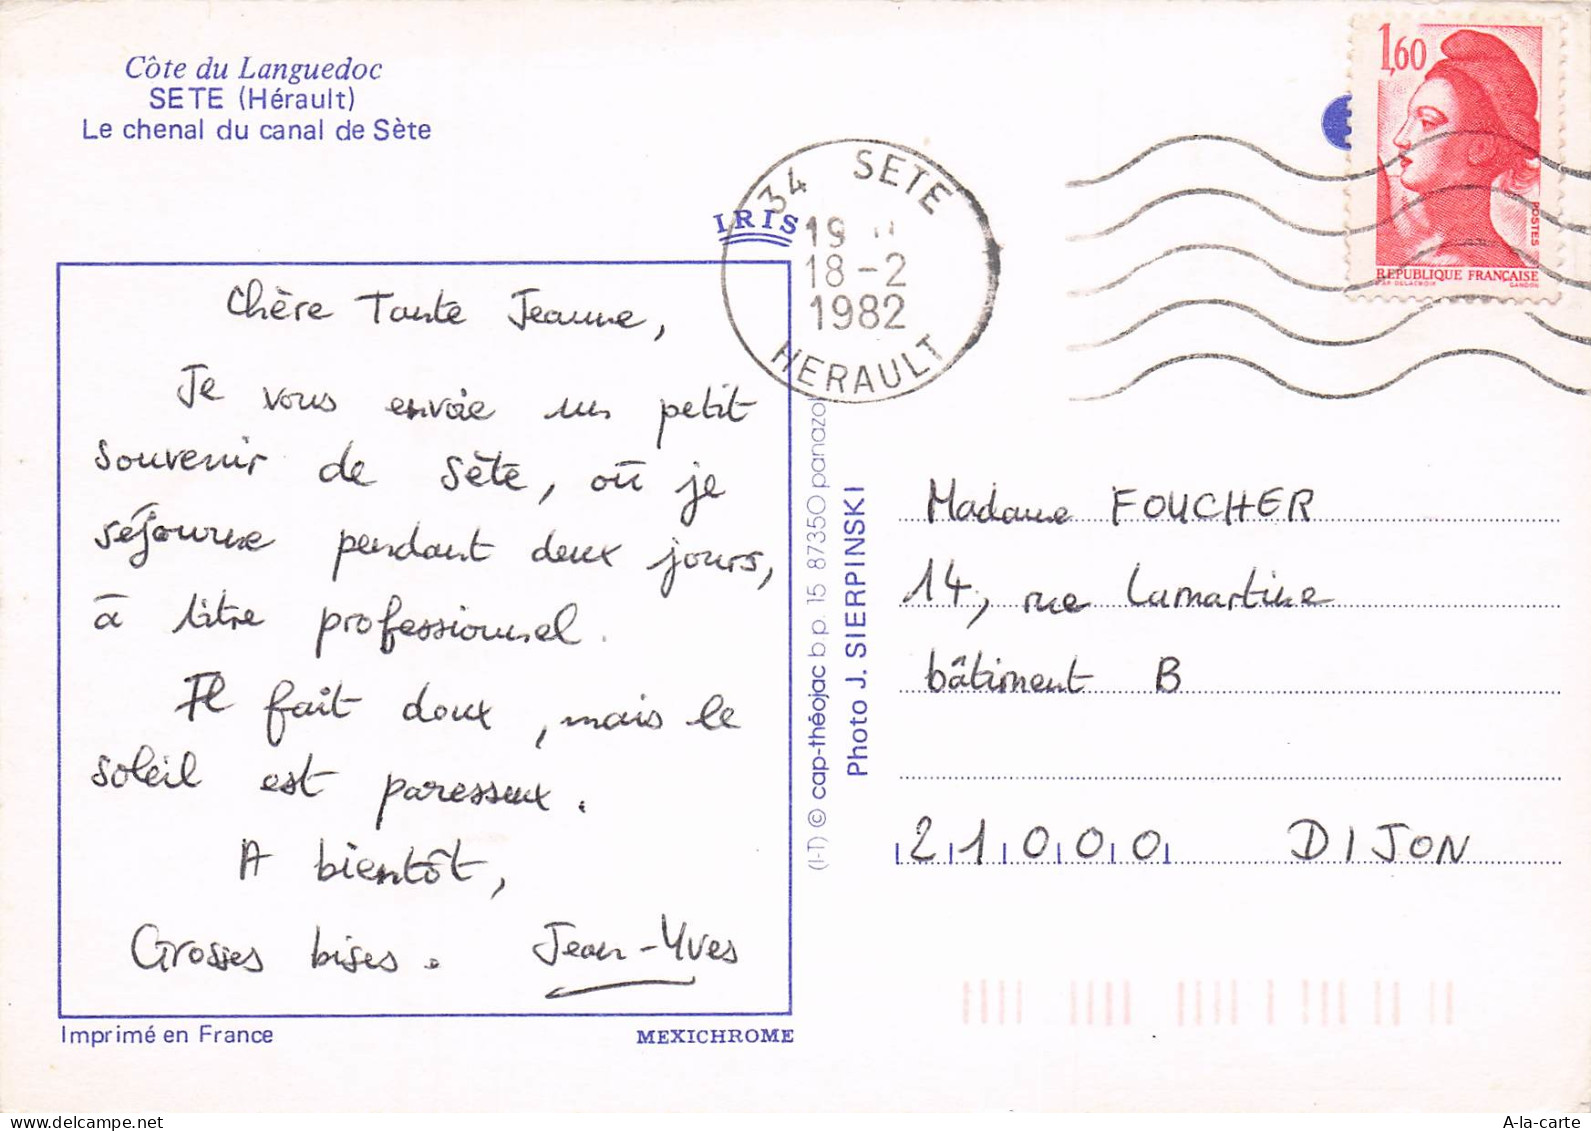 Côte du Languedoc
SETE (Hérault)
Le chenal du canal de Sète
1,60
POSTES
REPUBLIQUE FRANÇAISE
D'AP DELACROIX GANDON
34 SETE
19
18-2
1982
HERAULT
IRIS
Chère Tante Jeanne,
Je vous envoie un petit
souvenir de Sète, où je
séjourne pendant deux jours,
à titre professionnel.
Il fait doux, mais le
soleil est paresseux.
A bientôt,
Grosses bises. Jean-Yves
Imprimé en France
MEXICHROME
(I-T) © cap-théojac b p. 15 87350 panazo
Photo J. SIERPINSKI
Madame FOUCHER
14, rue Lamartine
bâtiment B
21000 DIJON
A-la-carte